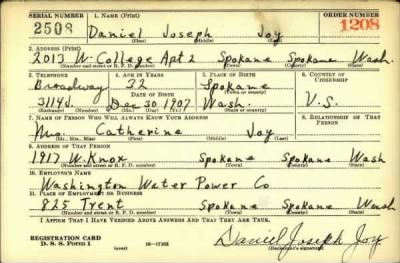 SERIAL NUMBER 1. NAME (Print) ORDER NUMBER
2508 Daniel Joseph Joy 1208
(First) (Middle) (Last)
2. ADDRESS (Print)
2013 W. College Apt 2 Spokane Spokane Wash.
(Number and street or R. F. D. number) (Town) (County) (State)
3. TELEPHONE 4. AGE IN YEARS 5. PLACE OF BIRTH 6. COUNTRY OF CITIZENSHIP
Broadway 32 Spokane
DATE OF BIRTH (Town or county)
3114J. Dec 30 1907 Wash. U.S.
(Mo.) (Day) (Yr.) (State or country)
7. NAME OF PERSON WHO WILL ALWAYS KNOW YOUR ADDRESS 8. RELATIONSHIP OF THAT PERSON
Mrs. Catherine Joy
(Mr., Mrs., Miss) (First) (Middle) (Last)
9. ADDRESS OF THAT PERSON
1917 W. Knox Spokane Spokane Wash
(Number and street or R. F. D. number) (Town) (County) (State)
10. EMPLOYER'S NAME
Washington Water Power Co
11. PLACE OF EMPLOYMENT OR BUSINESS
825 Trent Spokane Spokane Wash
(Number and street or R. F. D. number) (Town) (County) (State)
I AFFIRM THAT I HAVE VERIFIED ABOVE ANSWERS AND THAT THEY ARE TRUE.
REGISTRATION CARD
D. S. S. Form 1 (over) 16-17105 Daniel Joseph Joy
(Registrant's signature)